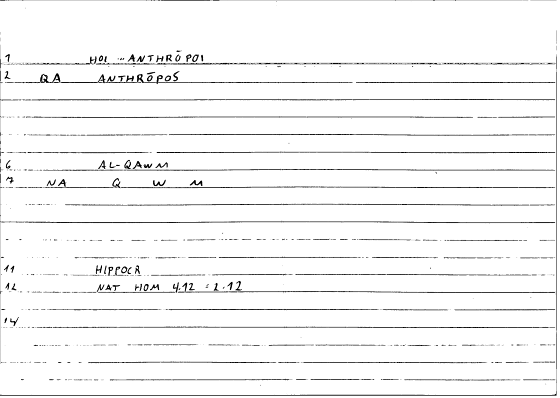 1 HOI - ANTHRŌPOI
2 QA ANTHRŌPOS
6 AL-QAWM
7 NA Q W M
11 HIPPOCR
12 NAT HOM 4.12 = 2.12
14